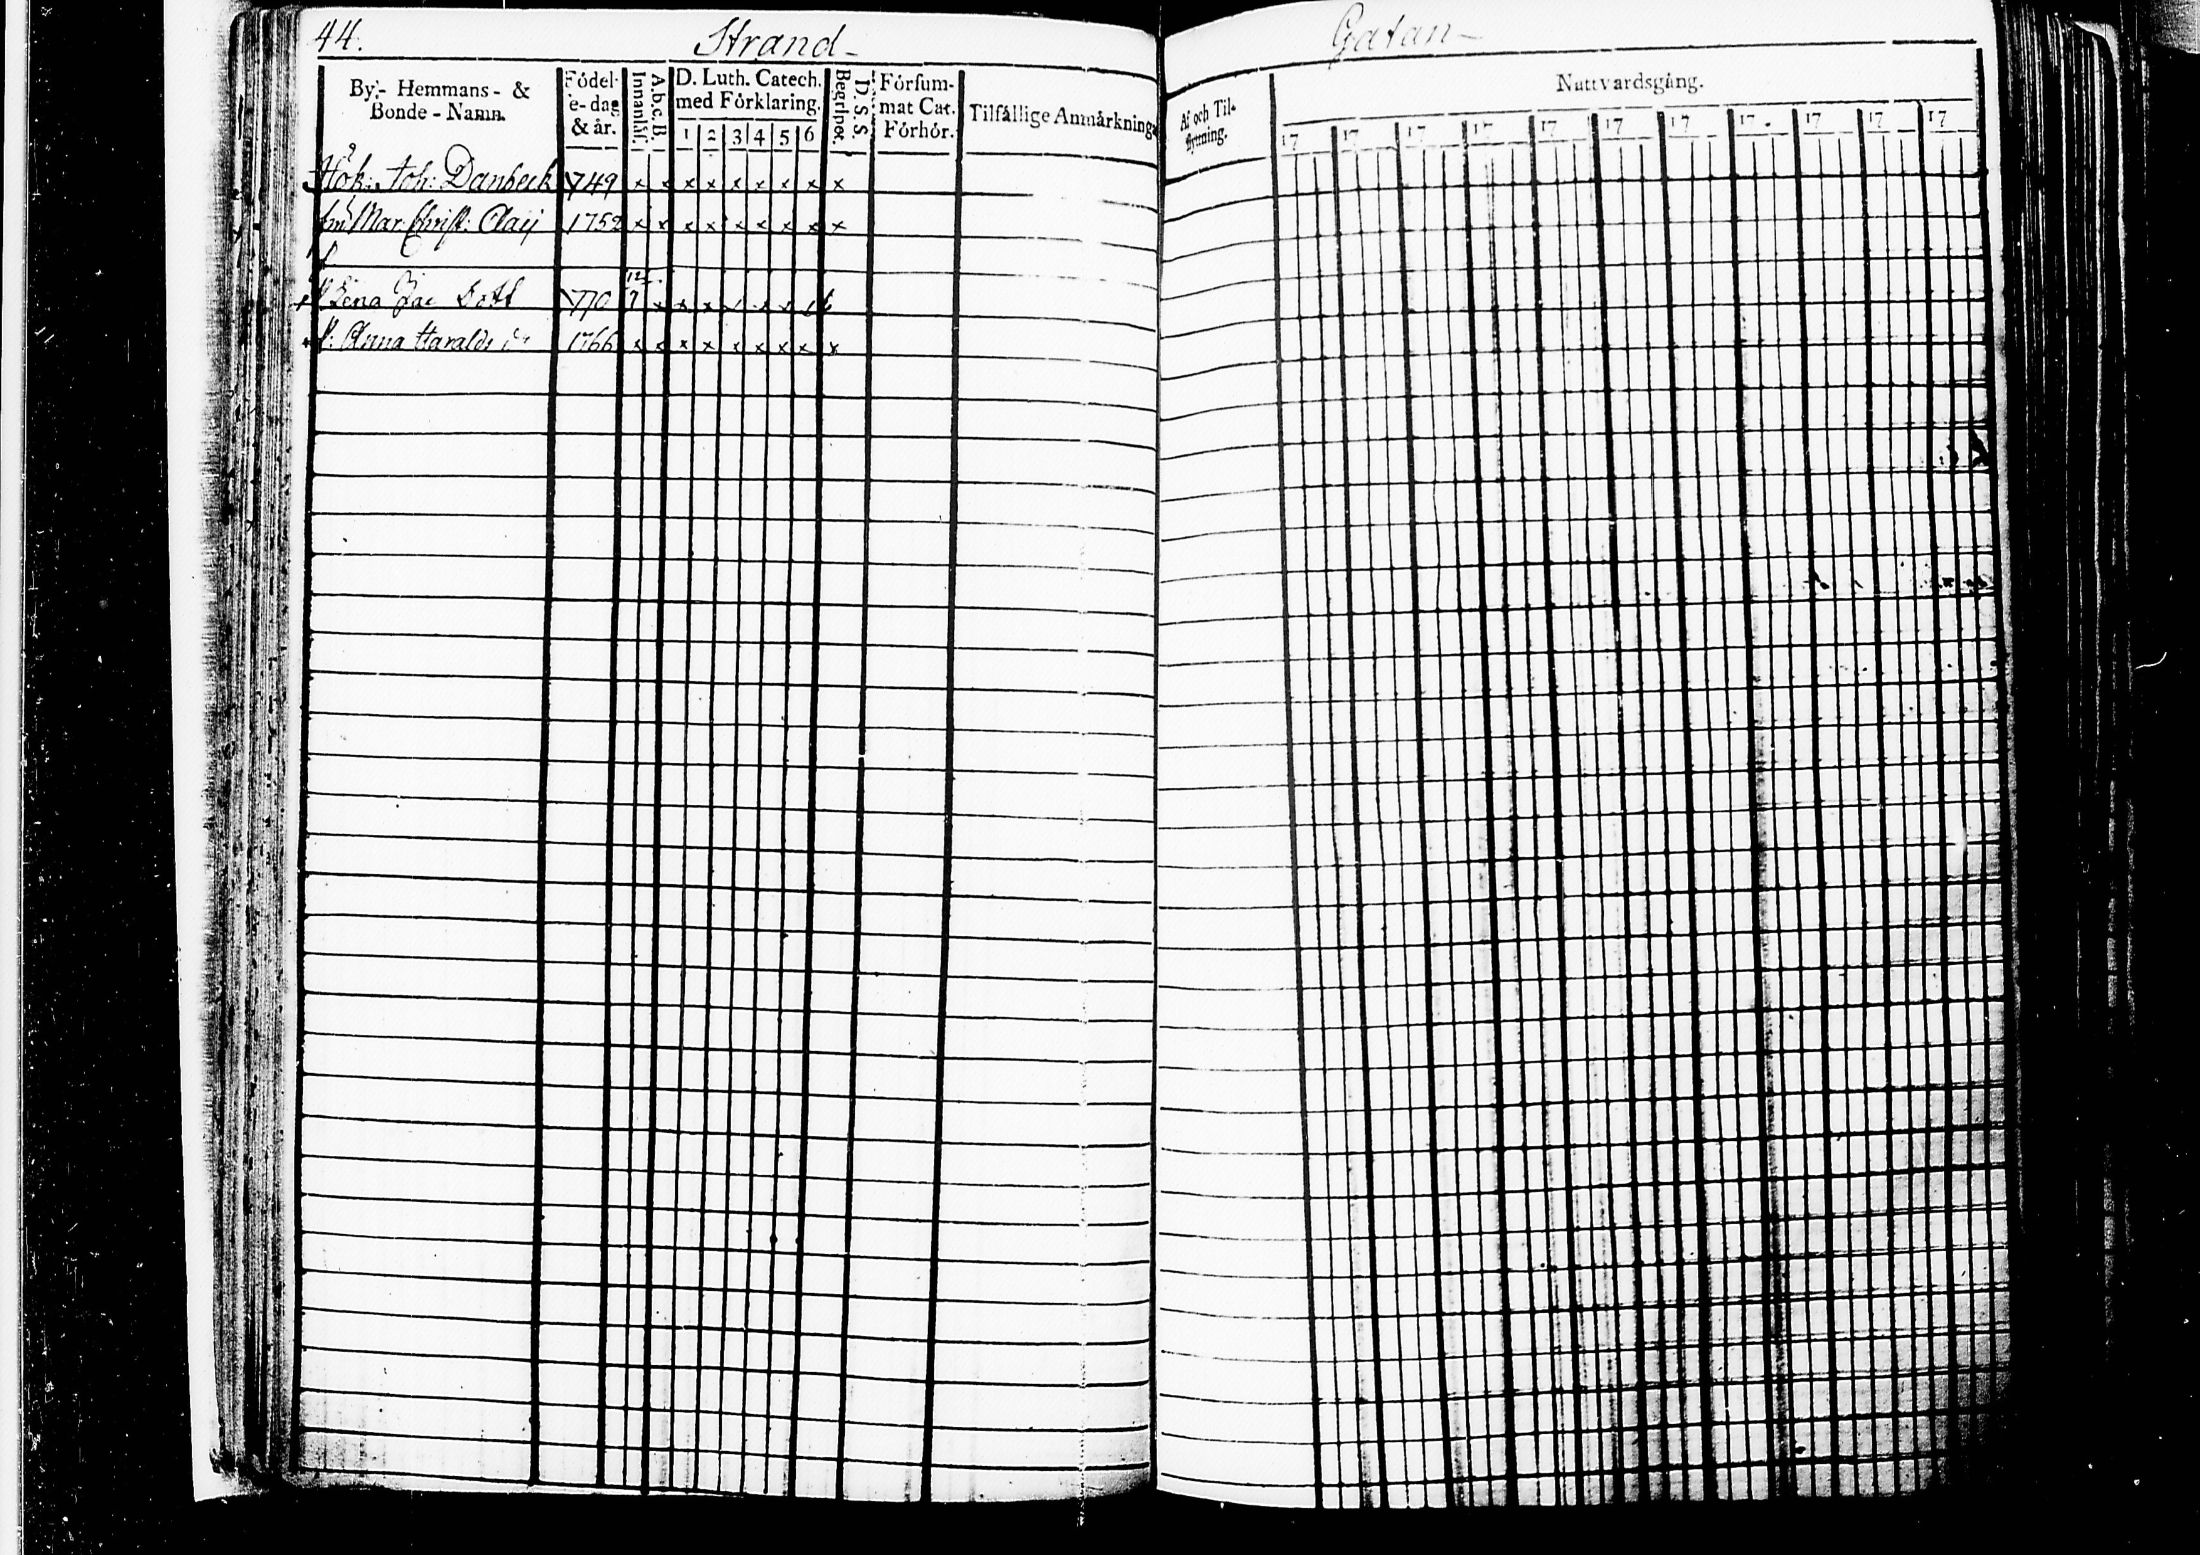 44. Strand-
By:- Hemmans- &
Bonde-Namn.
Födel-
e-dag
& år.
Innanläs.
A.b.c.B.
D. Luth. Catech.
med Förklaring.
1 2 3 4 5 6
Begriper.
D.S.S.
Försum-
mat Cat.
Förhör.
Tilfällige Anmärkning
Hök: Joh: Danbeck 1749 x x x x x x x x x
Mar Christ: Clay 1752 x x x x x x x x x
Lena Jac Dott 1770
Anna Haralds 1766 x x x x x x x x x
Gatan-
Af och Til-
flyttning.
Nattvardsgång.
17 17 17 17 17 17 17 17 17 17 17